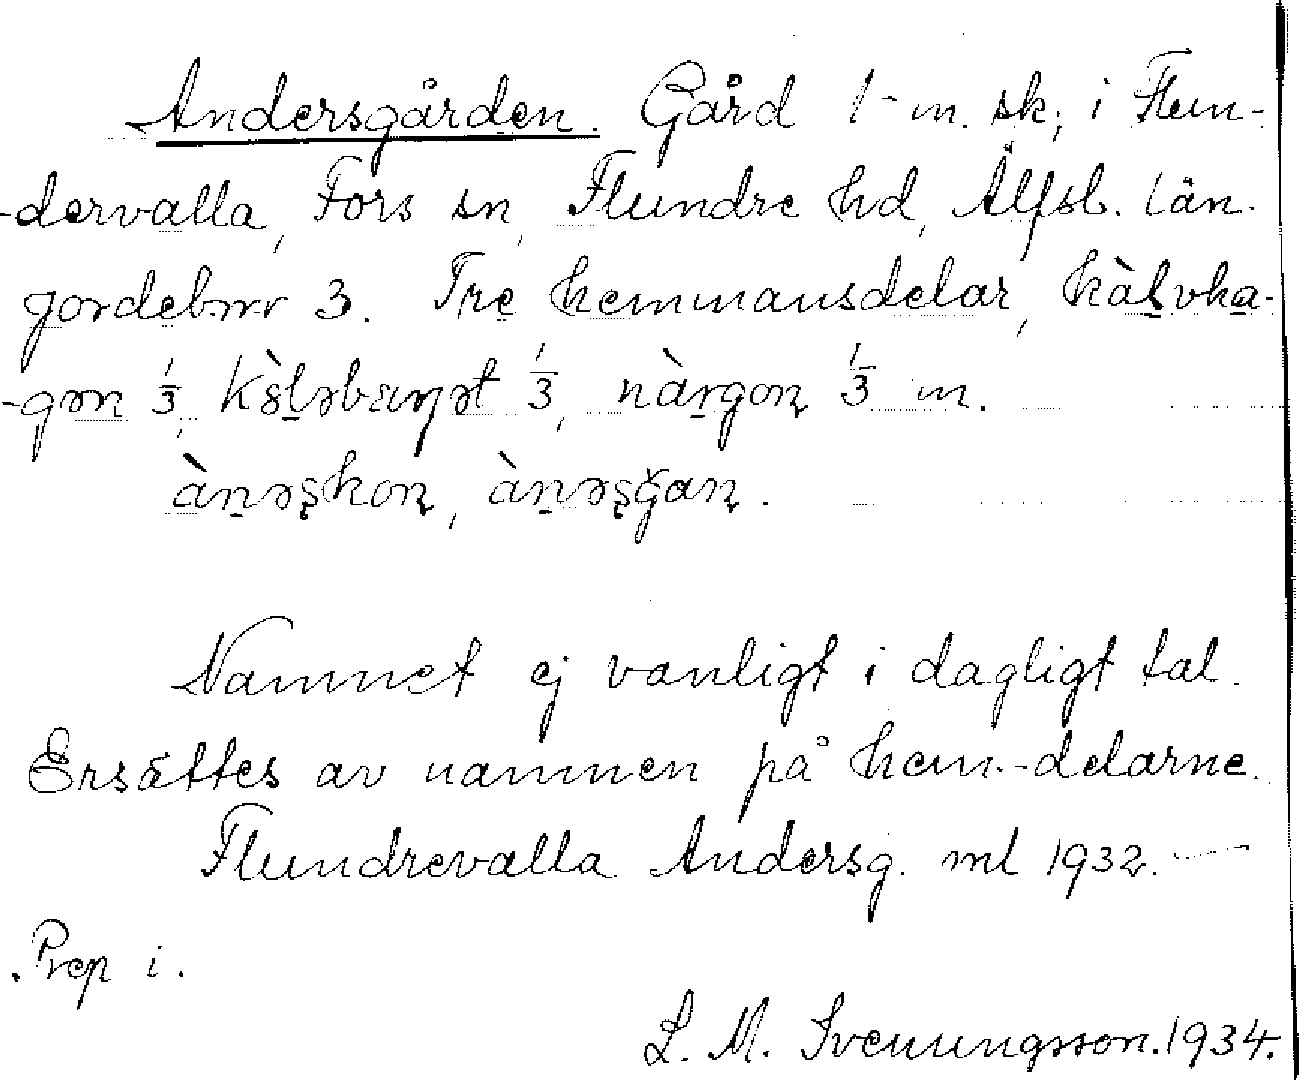 Andersgården. Gård 1 m. sk; i Flun-
-dervalla, Fors sn, Flundre hd, Älfsb. län.
jordebnr 3. Tre hemmansdelar, kàḷvha-
-gən 1/3, kə̀ḷəbaŋət 1/3, nàrgoɳ 1/3 m.
àṉəʂkoɳ, àṉəʂğaɳ.
Namnet ej vanligt i dagligt tal.
Ersättes av namnen på hem.-delarne.
Flundrevalla Andersg. ml 1932. —
Prep i.
L. M. Svenungsson. 1934.